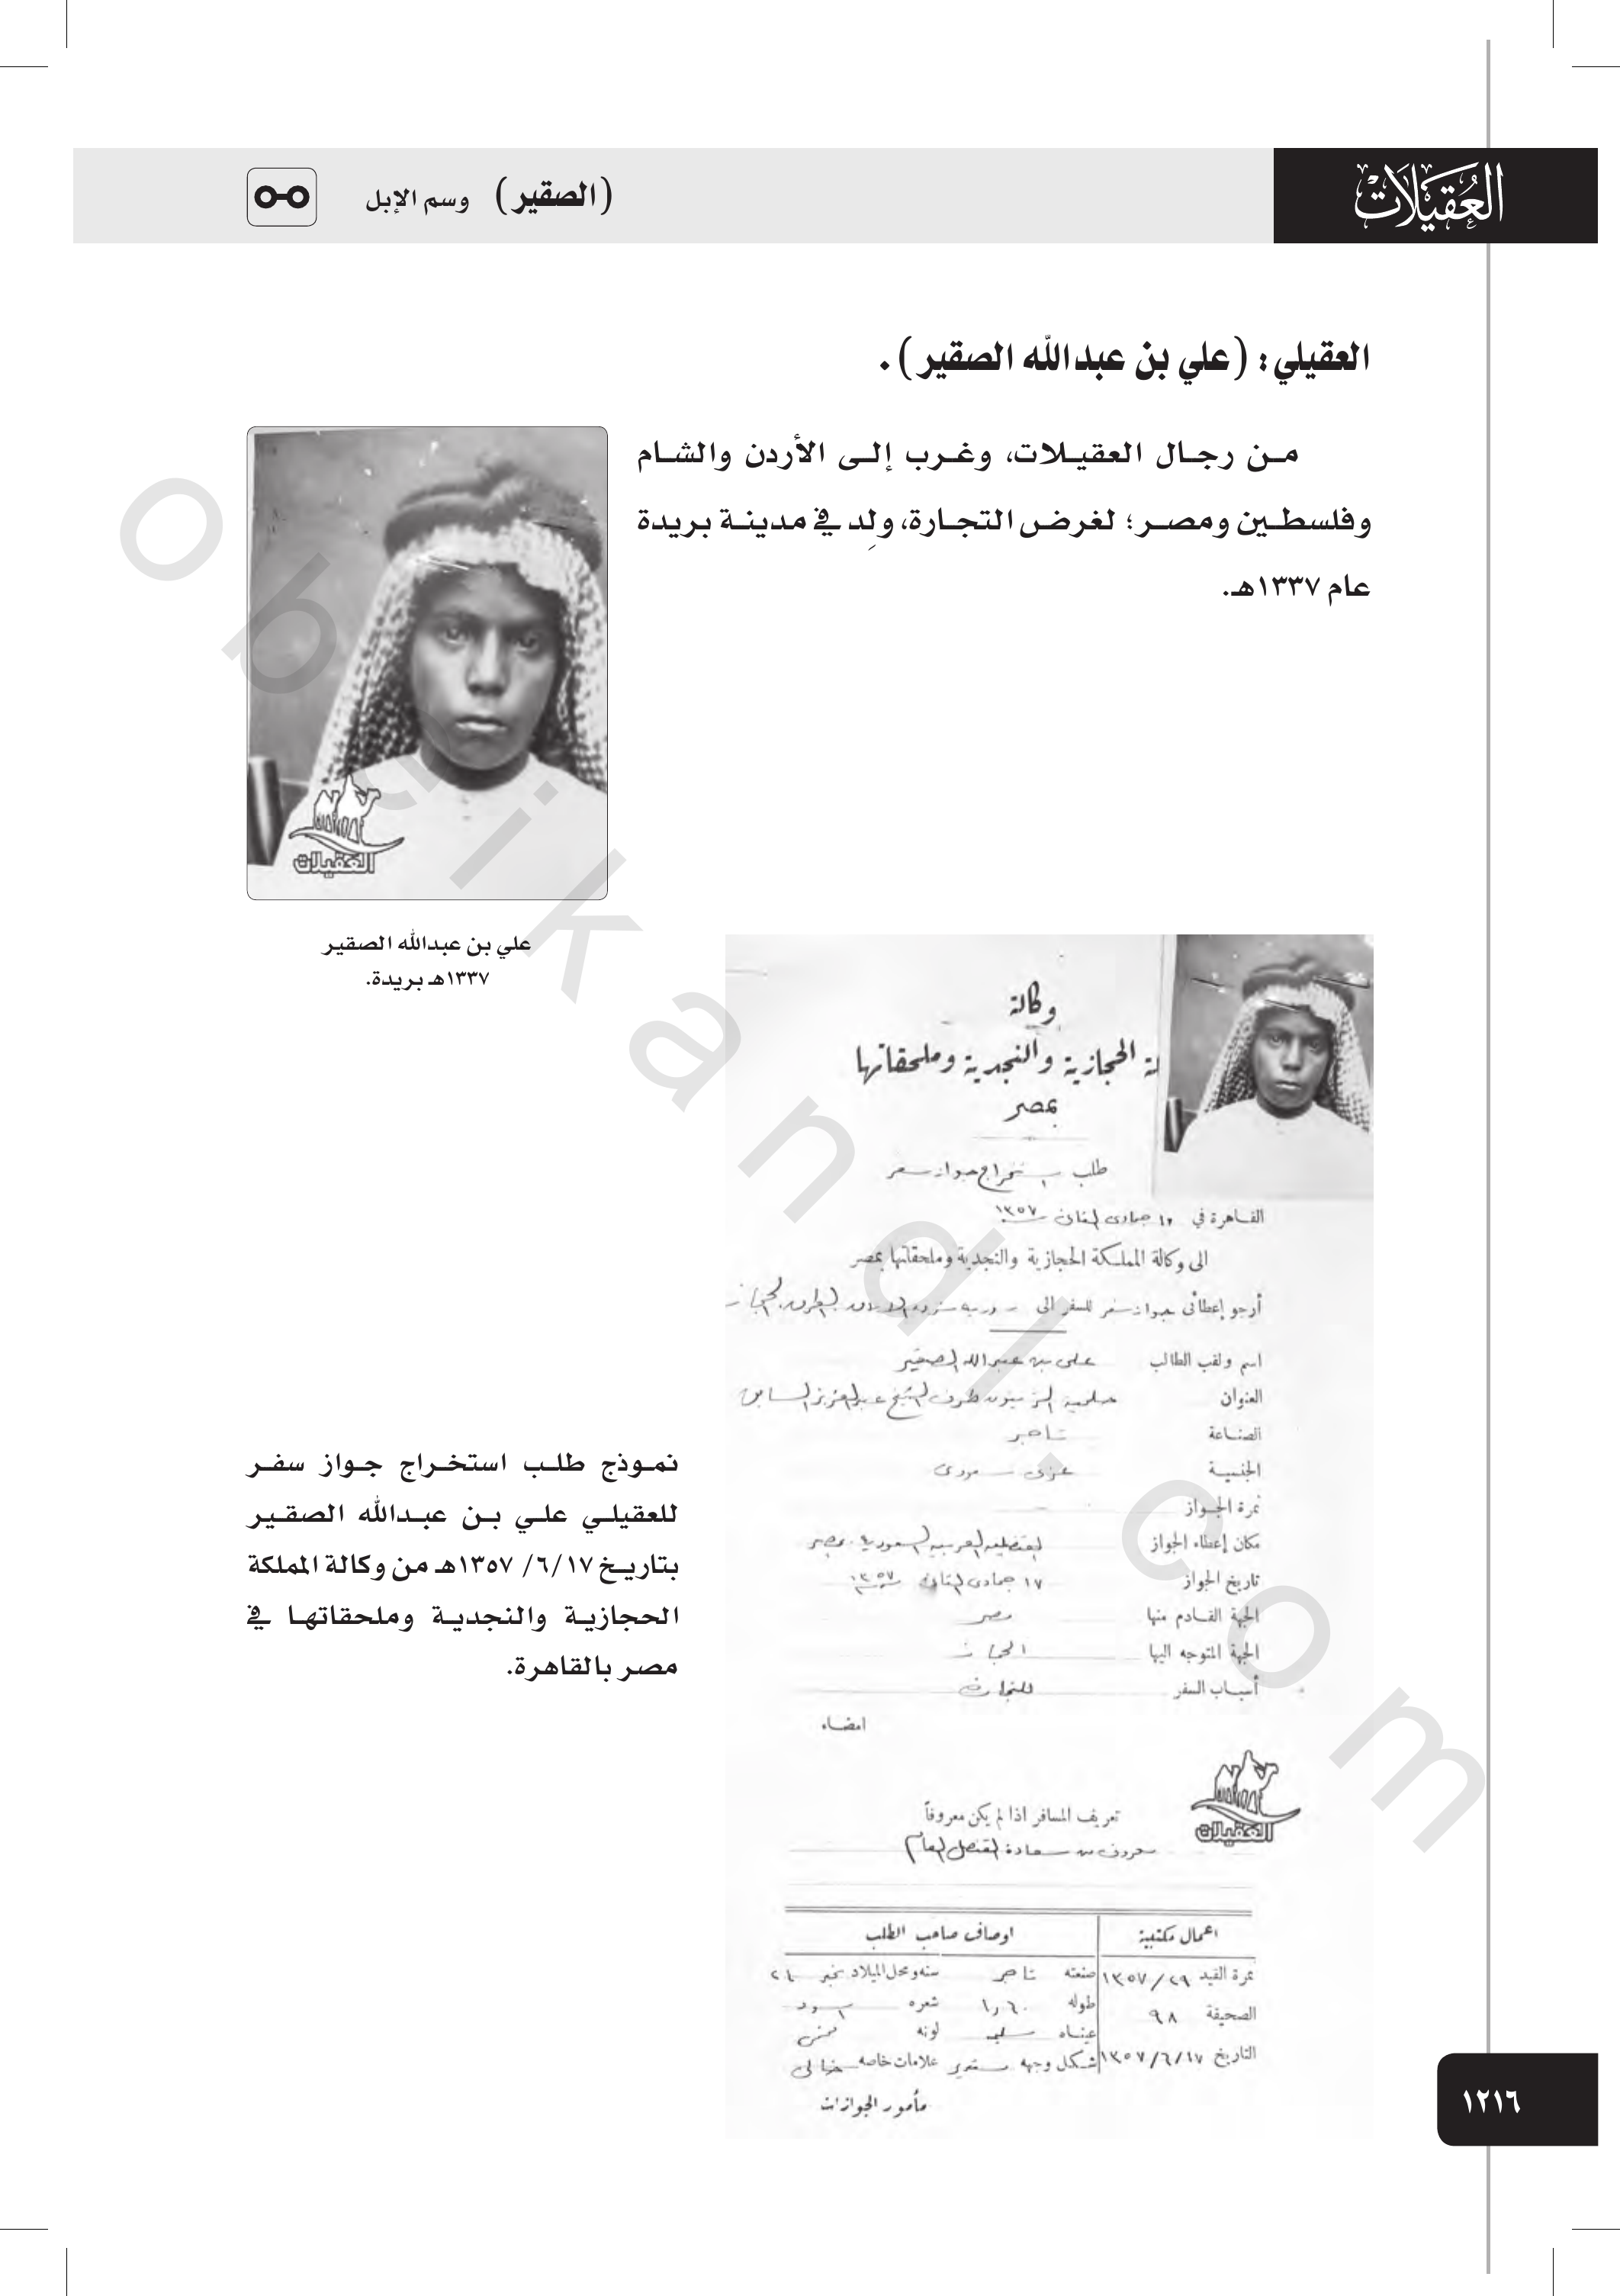 العقيلات
(الصقير) وسم الإبل
العقيلي: (علي بن عبدالله الصقير).
من رجال العقيلات، وغرب إلى الأردن والشام
وفلسطين ومصر؛ لغرض التجارة، ولِد في مدينة بريدة
عام ١٣٣٧هـ.
العقيلات
علي بن عبدالله الصقير
١٣٣٧هـ بريدة.
وكالة
لة الحجازية والنجدية وملحقاتها
بمصر
طلب استخراج جواز سفر
القاهرة في ١٢ جمادى الثان سنة ١٣٥٧
الى وكالة المملكة الحجازية والنجدية وملحقاتها بمصر
أرجو إعطائى جواز سفر للسفر الى
اسم ولقب الطالب على بن عبدالله الصقير
العنوان الشيخ عبدالعزيز
الصناعة تاجر
الجنسية عربى سعودى
نمرة الجواز
مكان إعطاء الجواز القنصلية العربية السعودية بمصر
تاريخ الجواز ١٧ جمادى الثان سنة ١٣٥٧
الجهة القادم منها مصر
الجهة المتوجه اليها الحجاز
أسباب السفر للتجارة
امضاء
تعريف المسافر اذا لم يكن معروفاً
معروف من سعادة القنصل العام
العقيلات
اعمال مكتبية اوصاف صاحب الطلب
نمرة القيد ٢٩/١٣٥٧ صنعته تاجر سنه ومحل الميلاد ٢١
الصحيفة ٩٨ طوله ١٫٦٠ شعره اسود
عيناه لونه قمحى
التاريخ ١٣٥٧/٦/١٧ شكل وجهه مستدير علامات خاصه خالى
مأمور الجوازات
نموذج طلب استخراج جواز سفر
للعقيلي علي بن عبدالله الصقير
بتاريخ ١٧/ ٦/ ١٣٥٧هـ من وكالة المملكة
الحجازية والنجدية وملحقاتها في
مصر بالقاهرة.
١٢١٦
obeikandl.com